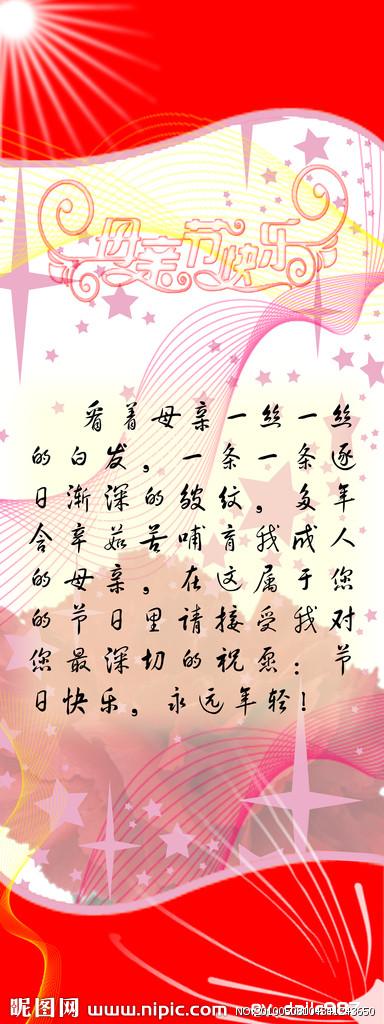 母亲节快乐
看着母亲一丝一丝
的白发，一条一条逐
日渐深的皱纹，多年
含辛茹苦哺育我成人
的母亲，在这属于您
的节日里请接受我对
您最深切的祝愿：节
日快乐，永远年轻！
昵图网 www.nipic.com